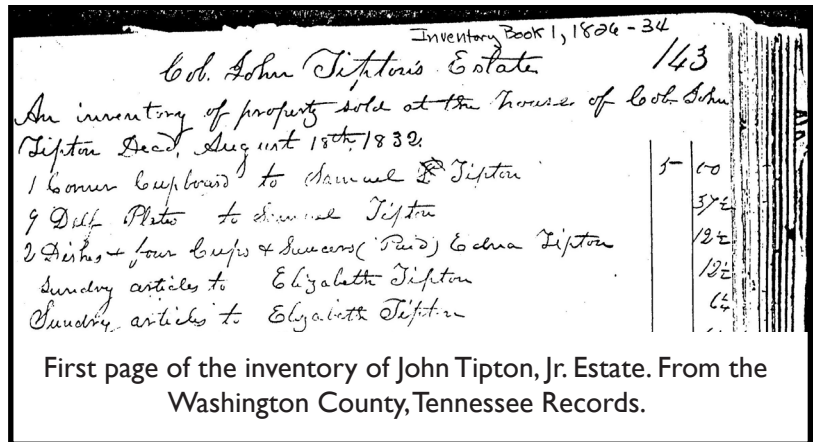 Inventory Book 1, 1826-34
Col. John Tipton's Estate 143
An inventory of property sold at the house of Col. John
Tipton Decd, August 18th, 1832.
1 Corner Cupboard to Samuel P Tipton 5- 00
9 Delf Plates to Samuel Tipton 37½
2 Dishes + four Cups & Saucers (Paid) Edna Tipton 12½
Sundry articles to Elizabeth Tipton 12½
Sundry articles to Elizabeth Tipton 6¼
First page of the inventory of John Tipton, Jr. Estate. From the
Washington County, Tennessee Records.